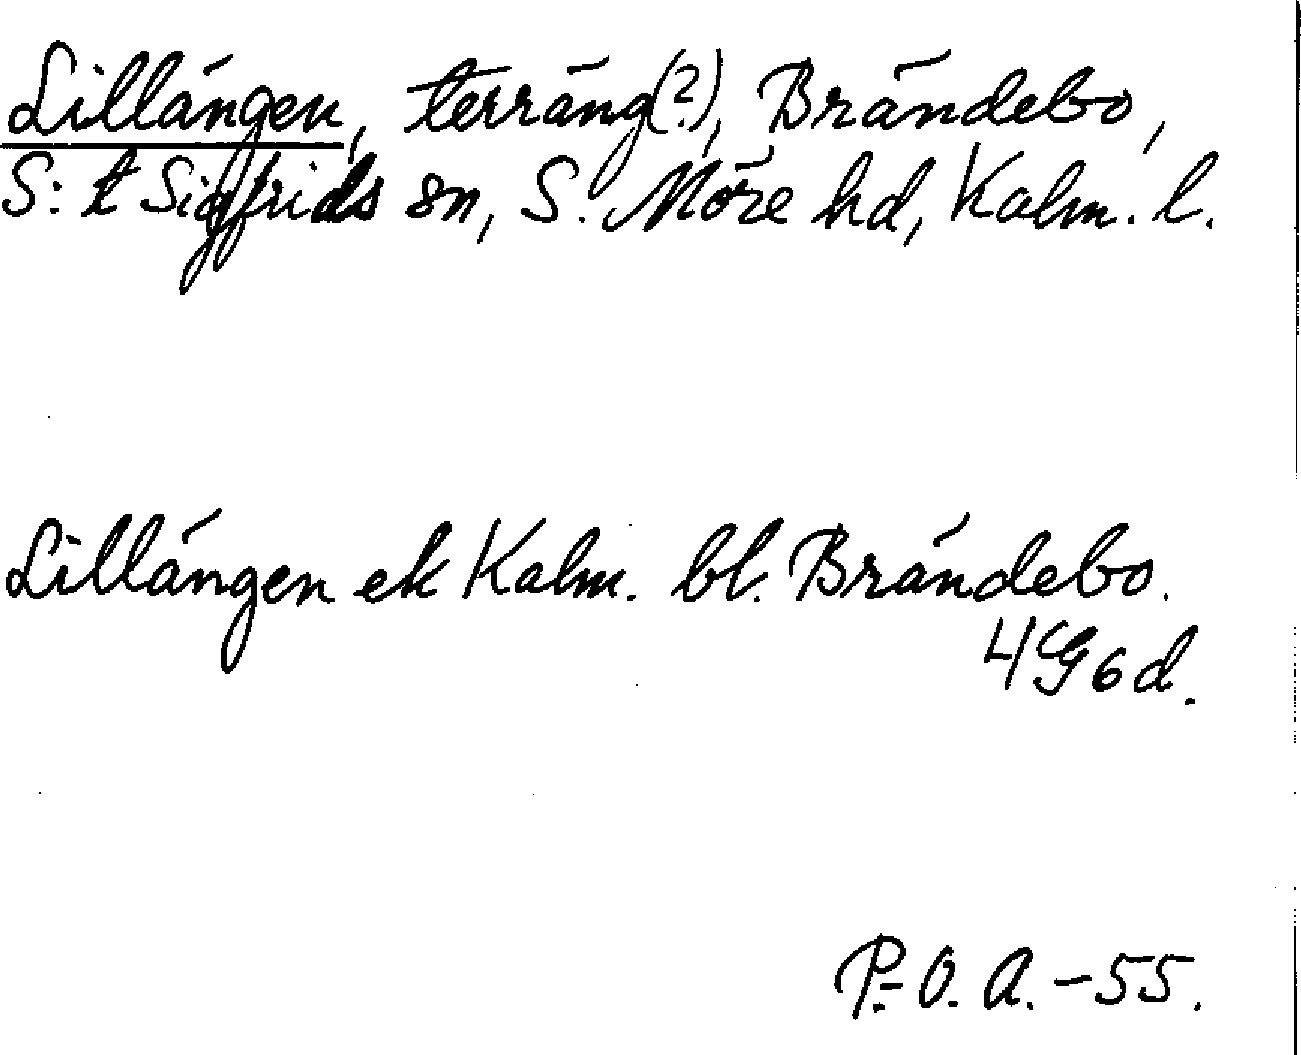 Lillängen, terräng(?), Brändebo,
S:t Sigfrids sn, S. Möre hd, Kalm. l.
Lillängen ek Kalm. bl. Brändebo.
4G6d.
P.-O. A. -55.